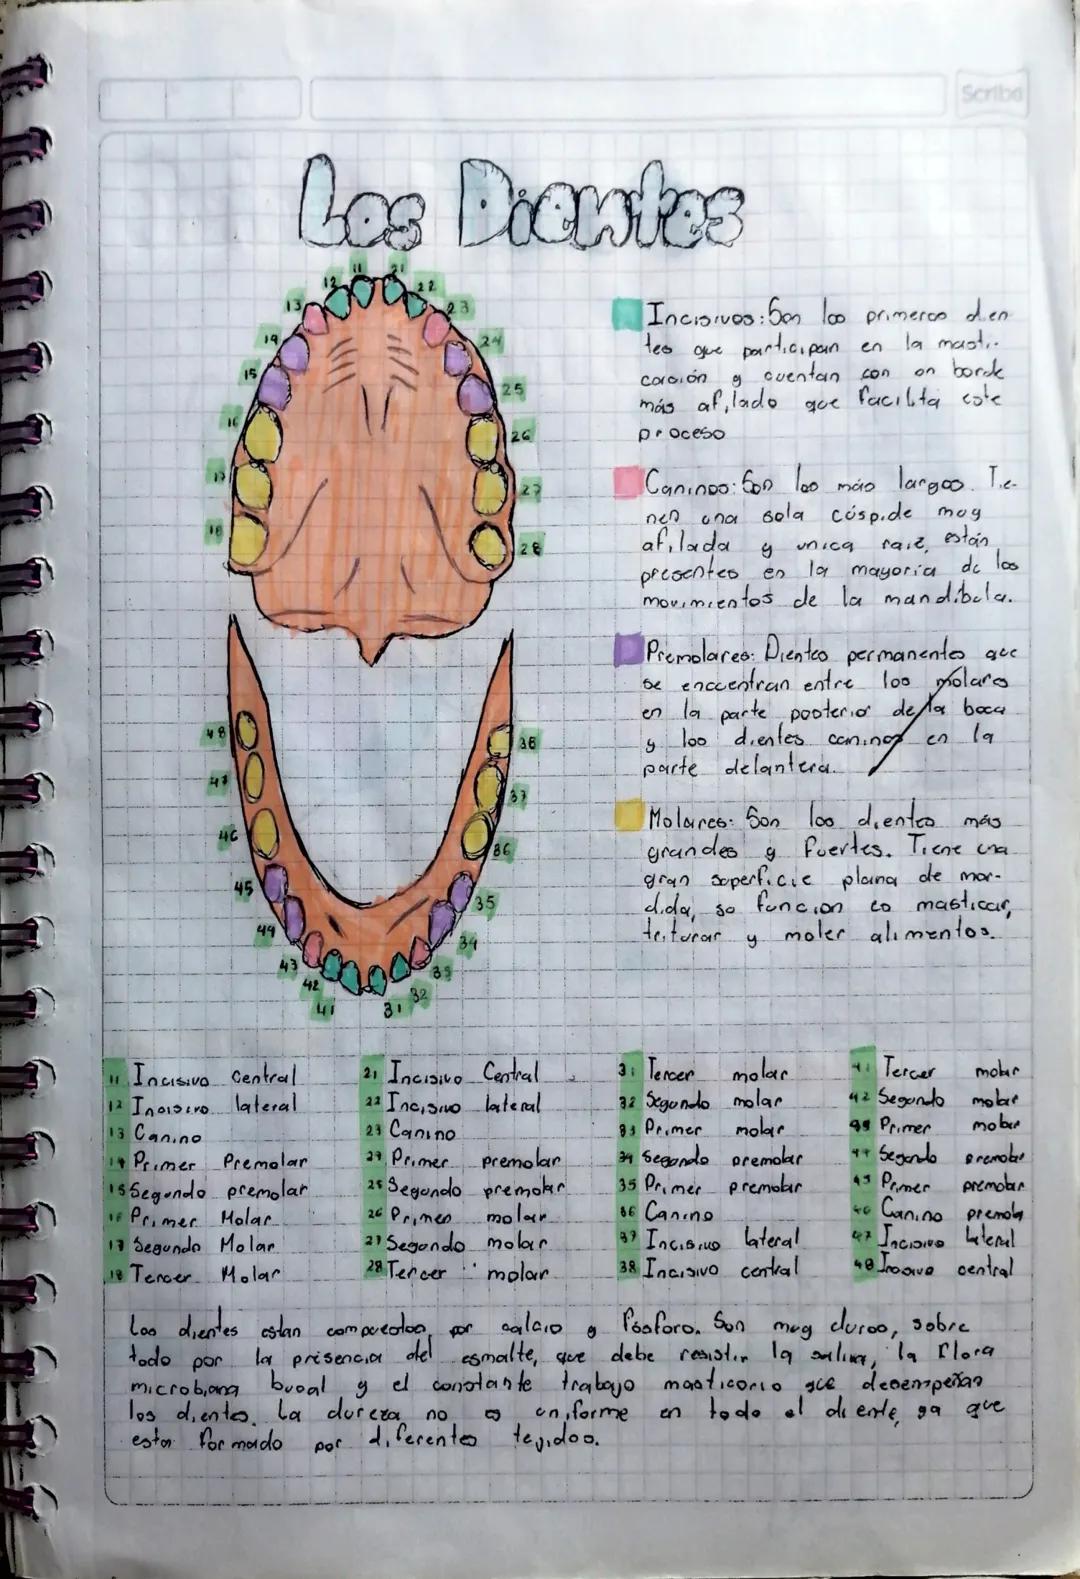 Scribe
Los Dientes
11 21
12 22
13 23
14 24
15 25
16 26
17 27
18 28
48 38
47 37
46 36
45 35
44 34
43 33
42 32
41 31
Incisivos: Son los primeros dien
tes que participan en la masti-
cación y cuentan con un borde
más afilado que facilita este
proceso
Caninos: Son los más largos. Tie-
nen una sola cúspide muy
afilada y unica raiz, están
presentes en la mayoria de los
movimientos de la mandibula.
Premolares: Dientes permanentes que
se encuentran entre los molares
en la parte posterior de la boca
y los dientes caninos en la
parte delantera.
Molares: Son los dientes más
grandes y fuertes. Tiene una
gran superficie plana de mor-
dida, su funcion es masticar,
triturar y moler alimentos.
11 Incisivo Central
12 Incisivo lateral
13 Canino
14 Primer Premolar
15 Segundo premolar
16 Primer Molar
17 Segundo Molar
18 Tercer Molar
21 Incisivo Central
22 Incisivo lateral
23 Canino
24 Primer premolar
25 Segundo premolar
26 Primer molar
27 Segundo molar
28 Tercer molar
31 Tercer molar
32 Segundo molar
33 Primer molar
34 Segundo premolar
35 Primer premolar
36 Canino
37 Incisivo lateral
38 Incisivo central
41 Tercer molar
42 Segundo molar
Primer molar
44 Segundo premolar
45 Primer premolar
46 Canino premola
47 Incisivo lateral
48 Incisivo central
Los dientes estan compuestos por calcio y fósforo. Son muy duros, sobre
todo por la presencia del esmalte, que debe resistir la saliva, la flora
microbiana bucal y el constante trabajo masticorio que desempeñan
los dientes. La dureza no es uniforme en todo el diente, ya que
esta formado por diferentes tejidos.